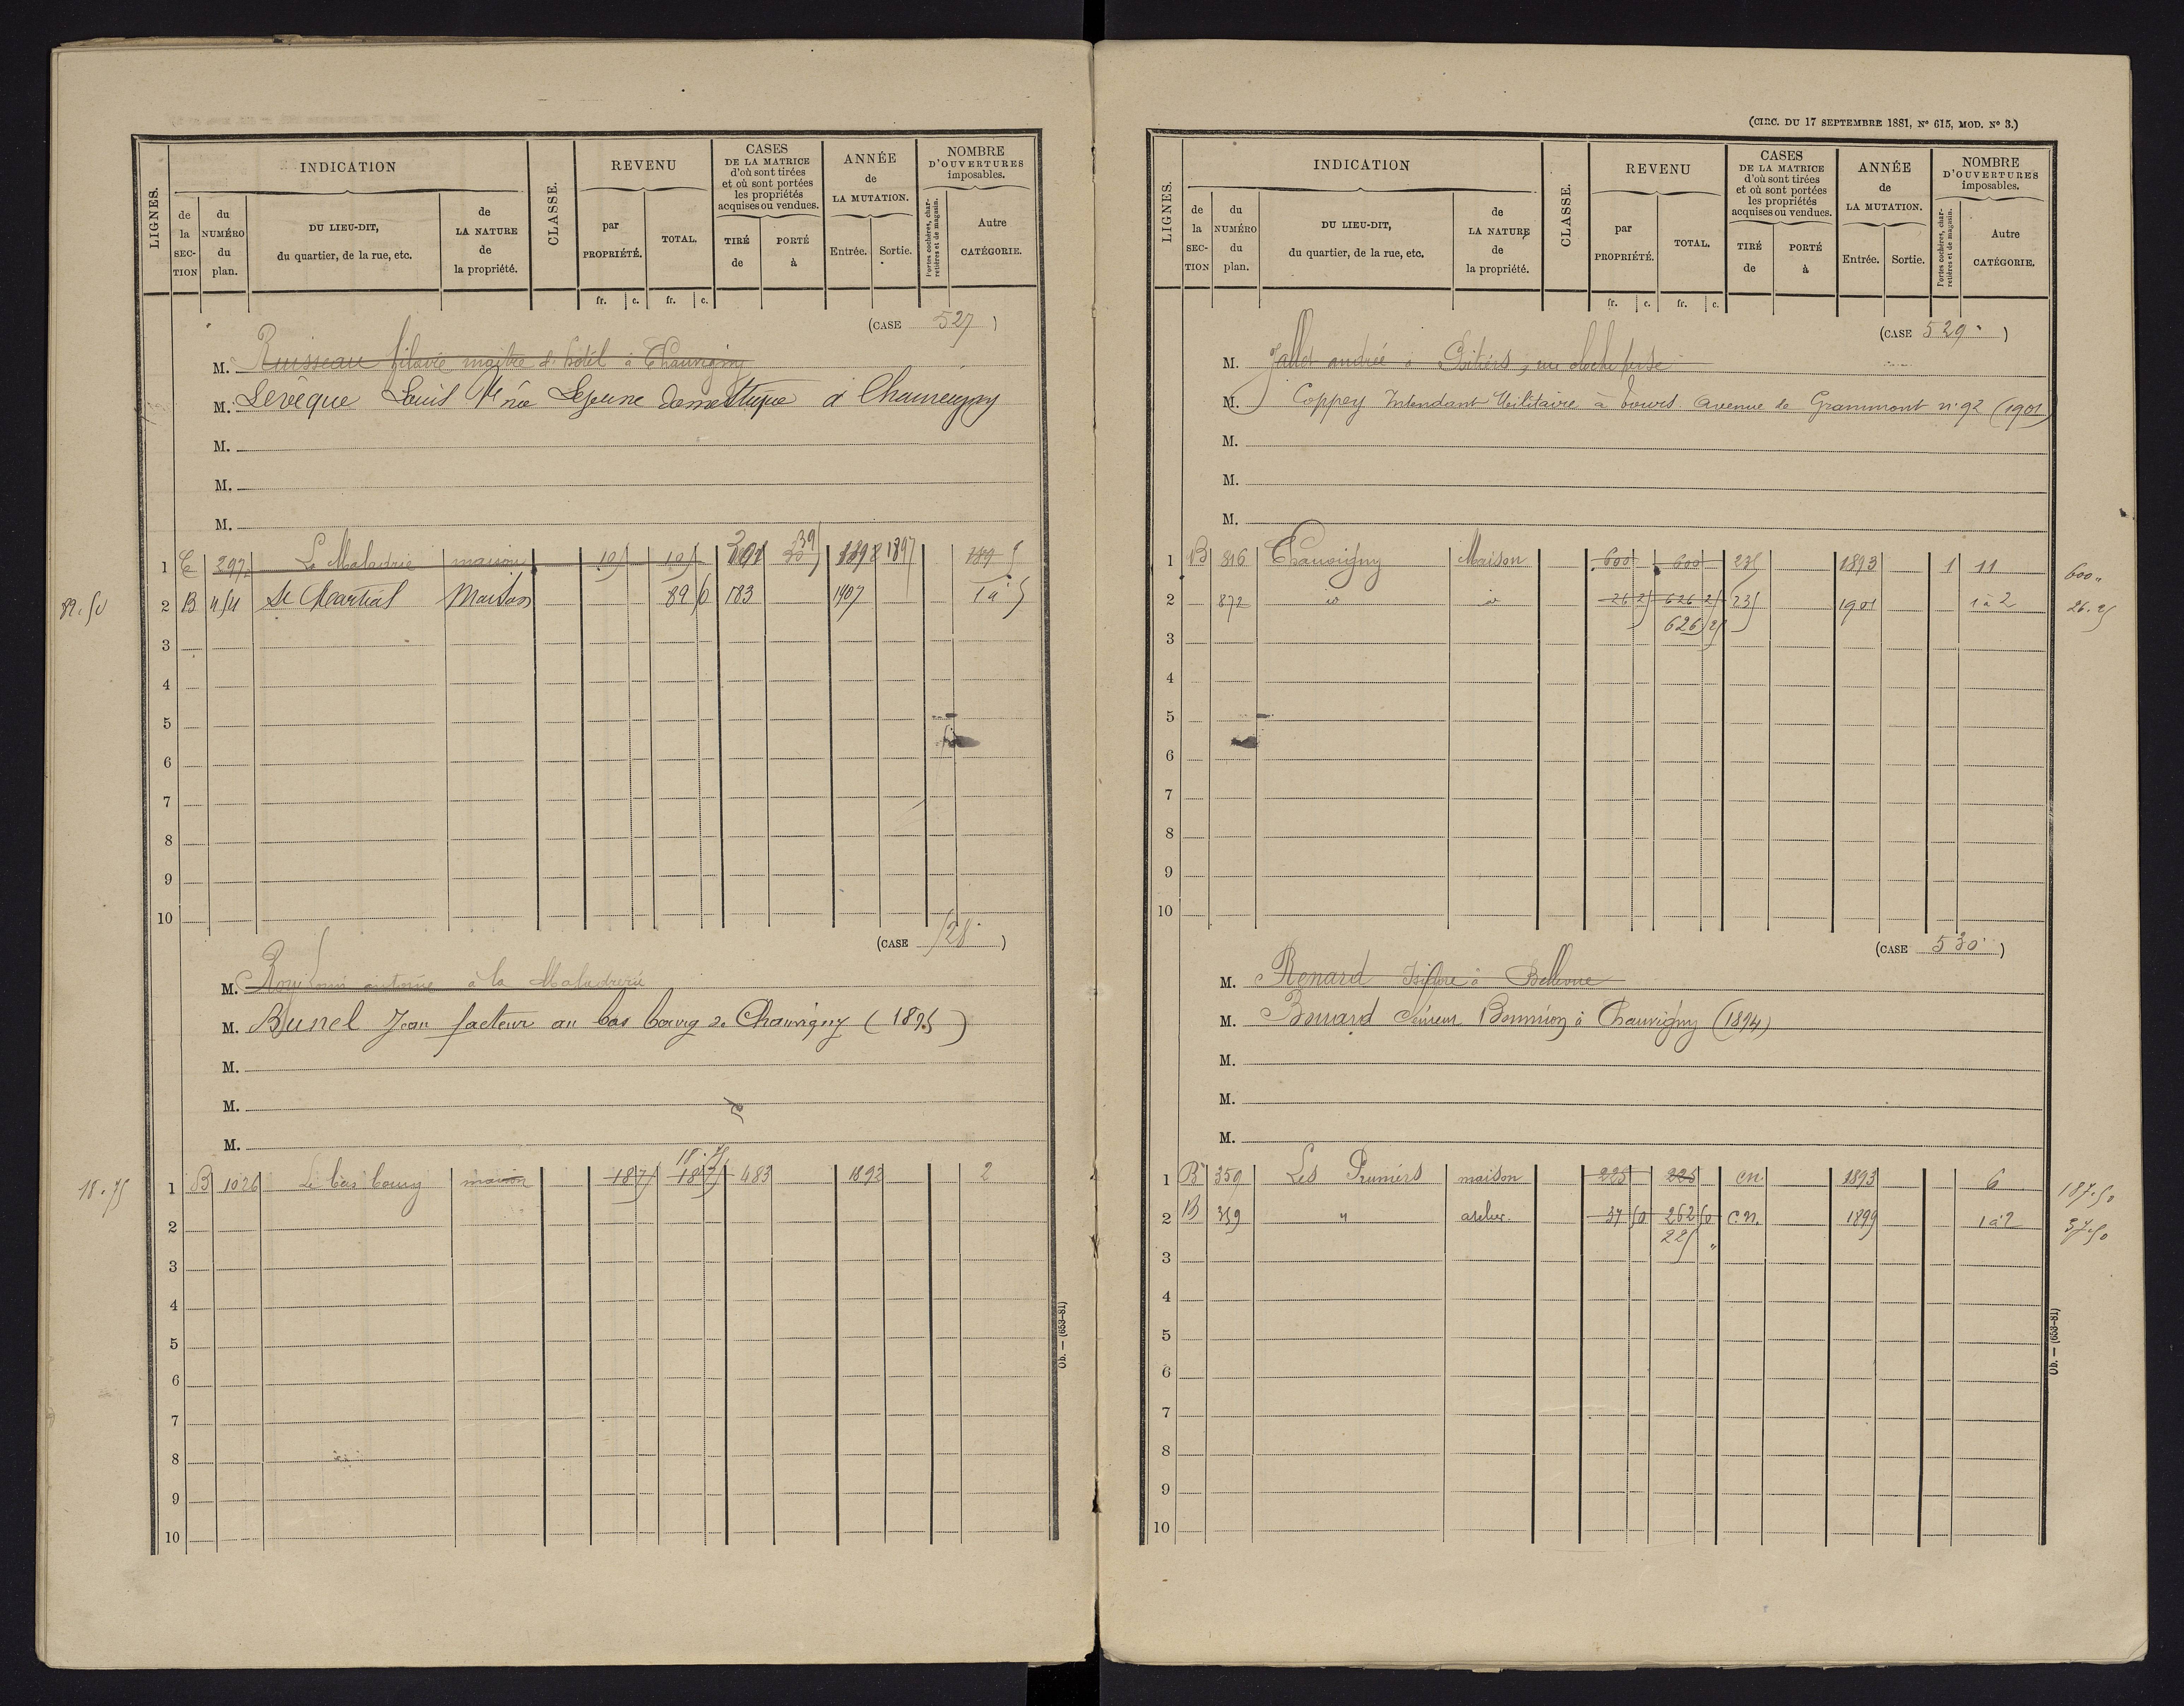 LIGNES.
INDICATION
de la SECTION
du NUMÉRO du plan.
DU LIEU-DIT, du quartier, de la rue, etc.
de LA NATURE de la propriété.
CLASSE.
REVENU
par PROPRIÉTÉ.
TOTAL.
fr. c. fr. c.
CASES DE LA MATRICE d'où sont tirées et où sont portées les propriétés acquises ou vendues.
TIRÉ de
PORTÉ à
ANNÉE de LA MUTATION.
Entrée. Sortie.
NOMBRE D'OUVERTURES imposables.
Portes cochères, charretières et de magasin.
Autre CATÉGORIE.
(CASE 527)
M. Ruisseau maître d'hôtel à Chauvigny
M. Lévêque Louis née Lejeune domestique à Chauvigny
M.
M.
M.
1 E 297 La Maladrie maison 1897
89.50 2 B St Martial Maison 89 50 183 1907 1 à 5
3
4
5
6
7
8
9
10
(CASE 528)
M. antoine à la Maladrerie
M. Bunel Jean facteur au bas bourg de Chauvigny (1895)
M.
M.
M.
18.75
18.75 1 B 1026 Le bas bourg maison 18 75 18 75 483 1892 2
2
3
4
5
6
7
8
9
10
Ob. — (653-81)
(CIRC. DU 17 SEPTEMBRE 1881, N° 615, MOD. N° 3.)
LIGNES.
INDICATION
de la SECTION
du NUMÉRO du plan.
DU LIEU-DIT, du quartier, de la rue, etc.
de LA NATURE de la propriété.
CLASSE.
REVENU
par PROPRIÉTÉ.
TOTAL.
fr. c. fr. c.
CASES DE LA MATRICE d'où sont tirées et où sont portées les propriétés acquises ou vendues.
TIRÉ de
PORTÉ à
ANNÉE de LA MUTATION.
Entrée. Sortie.
NOMBRE D'OUVERTURES imposables.
Portes cochères, charretières et de magasin.
Autre CATÉGORIE.
(CASE 529)
M. Jallet andré à Poitiers, rue
M. Coppey Intendant Militaire à Tours Avenue de Grammont n° 92 (1901)
M.
M.
M.
1 B 816 Chauvigny Maison 600 600 235 1893 1 11 600 "
2 872 id id 26 25 626 25 235 1901 1 à 2 26.25
626 25
3
4
5
6
7
8
9
10
(CASE 530)
M. Renard Isidore à Bellevue
M. à Chauvigny (1894)
M.
M.
M.
1 B 359 Les maison 225 225 c.n. 1893 6 187.50
2 B 359 " atelier. 37 50 262 50 c.n. 1899 1 à 2 37.50
225 "
3
4
5
6
7
8
9
10
Ob. — (653-81)